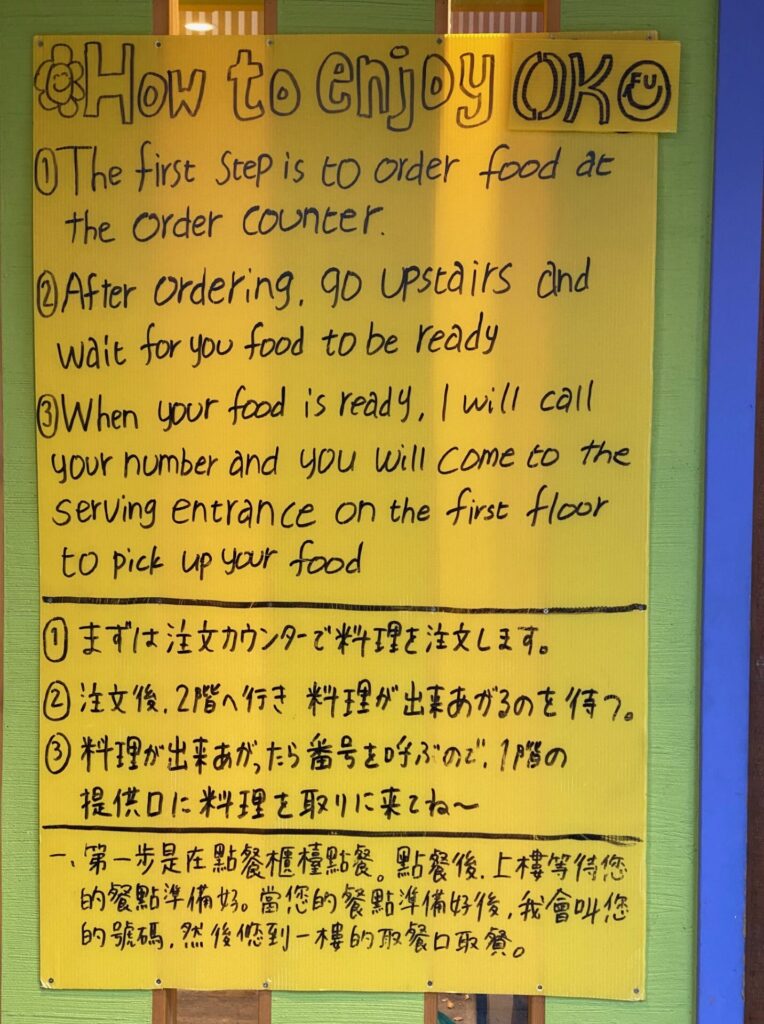 How to enjoy OKO FU
①The first step is to order food at
the order counter.
②After ordering, go upstairs and
wait for you food to be ready
③When your food is ready, I will call
your number and you will come to the
serving entrance on the first floor
to pick up your food
①まずは注文カウンターで料理を注文します。
②注文後、2階へ行き 料理が出来あがるのを待つ。
③料理が出来あがったら番号を呼ぶので、1階の
提供口に料理を取りに来てね〜
一、第一步是在點餐櫃檯點餐。點餐後、上樓等待您
的餐點準備好。當您的餐點準備好後,我會叫您
的號碼,然後您到一樓的取餐口取餐。